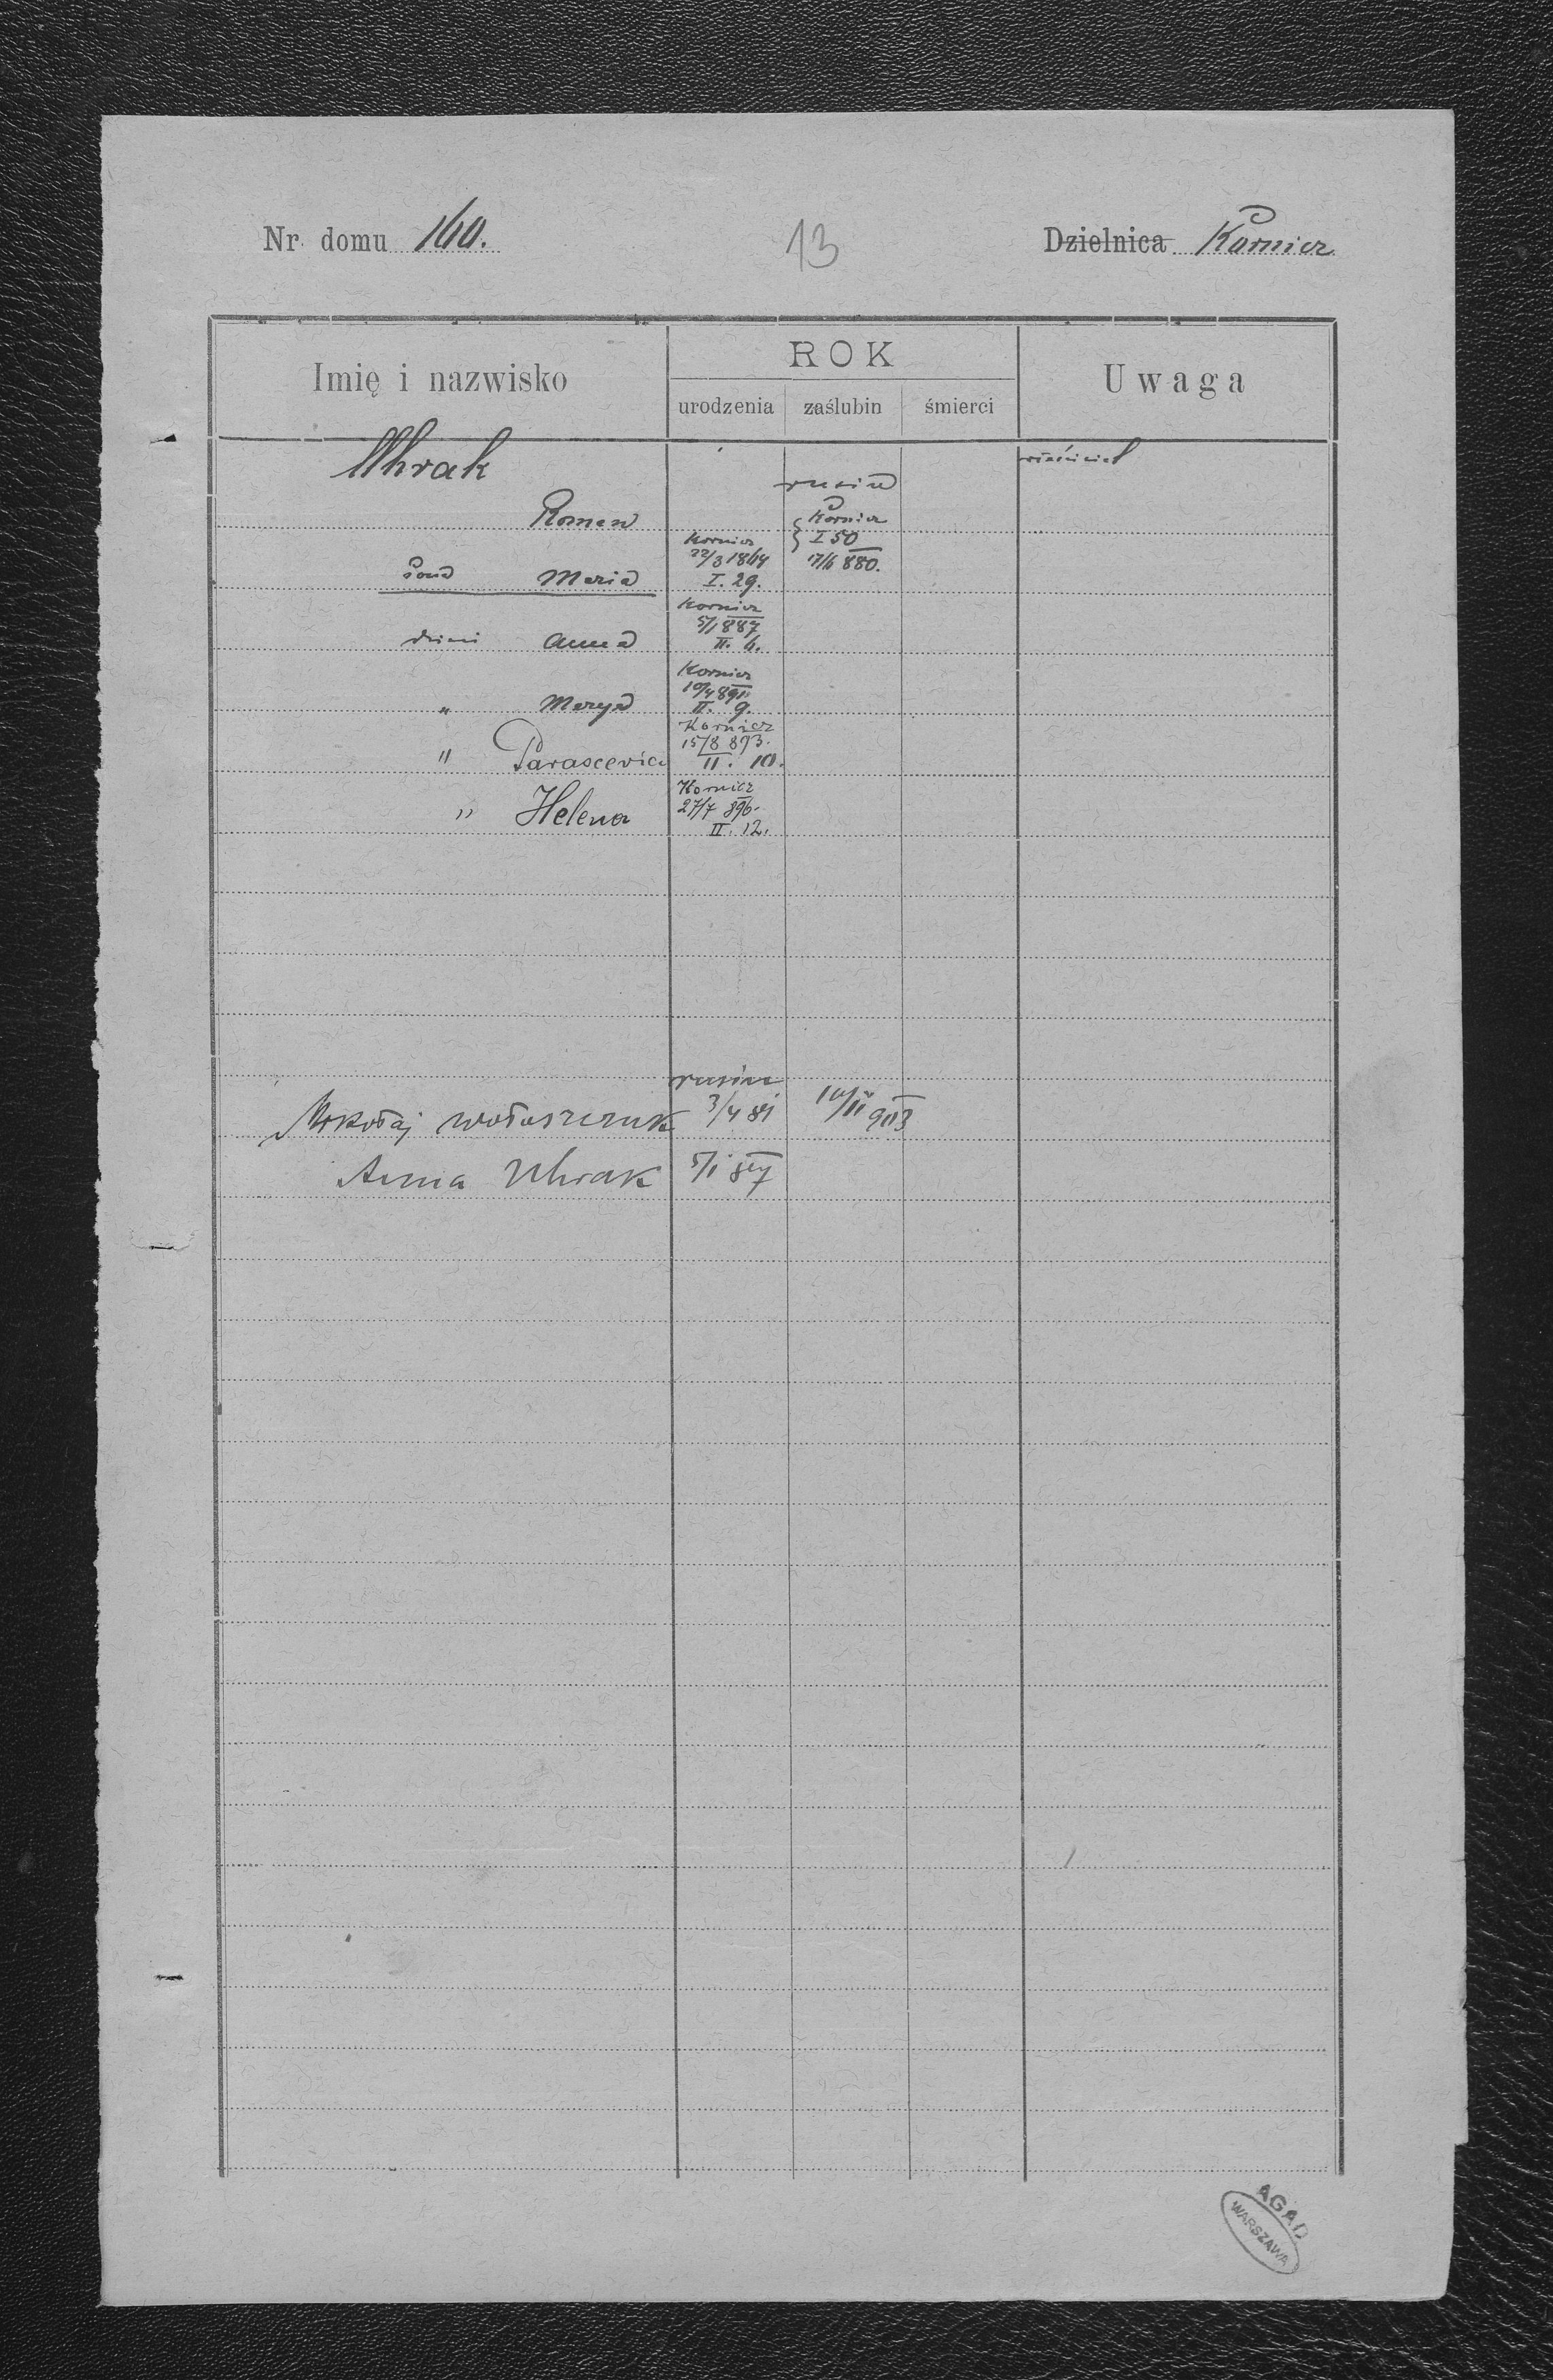 Nr domu 160.
13
Dzielnica Kornicz
Imię i nazwisko
ROK
Uwaga
urodzenia zaślubin śmierci
Uhrak
rusin
Roman
Kornicz
I 50
17/6 880.
żona Maria
Kornicz
22/3 1864
I. 29.
dzieci Anna
Kornicz
5/1 887
II. 6.
" Marya
Kornicz
10/4 891
II. 9.
" Parascevia
Kornicz
15/8 893.
II. 10.
" Helena
Kornicz
27/7 896.
II. 12.
rusini
Mikołaj Wołoszczuk 3/4 81 10/II 903
Anna Uhrak 5/1 887
AGAD
WARSZAWA